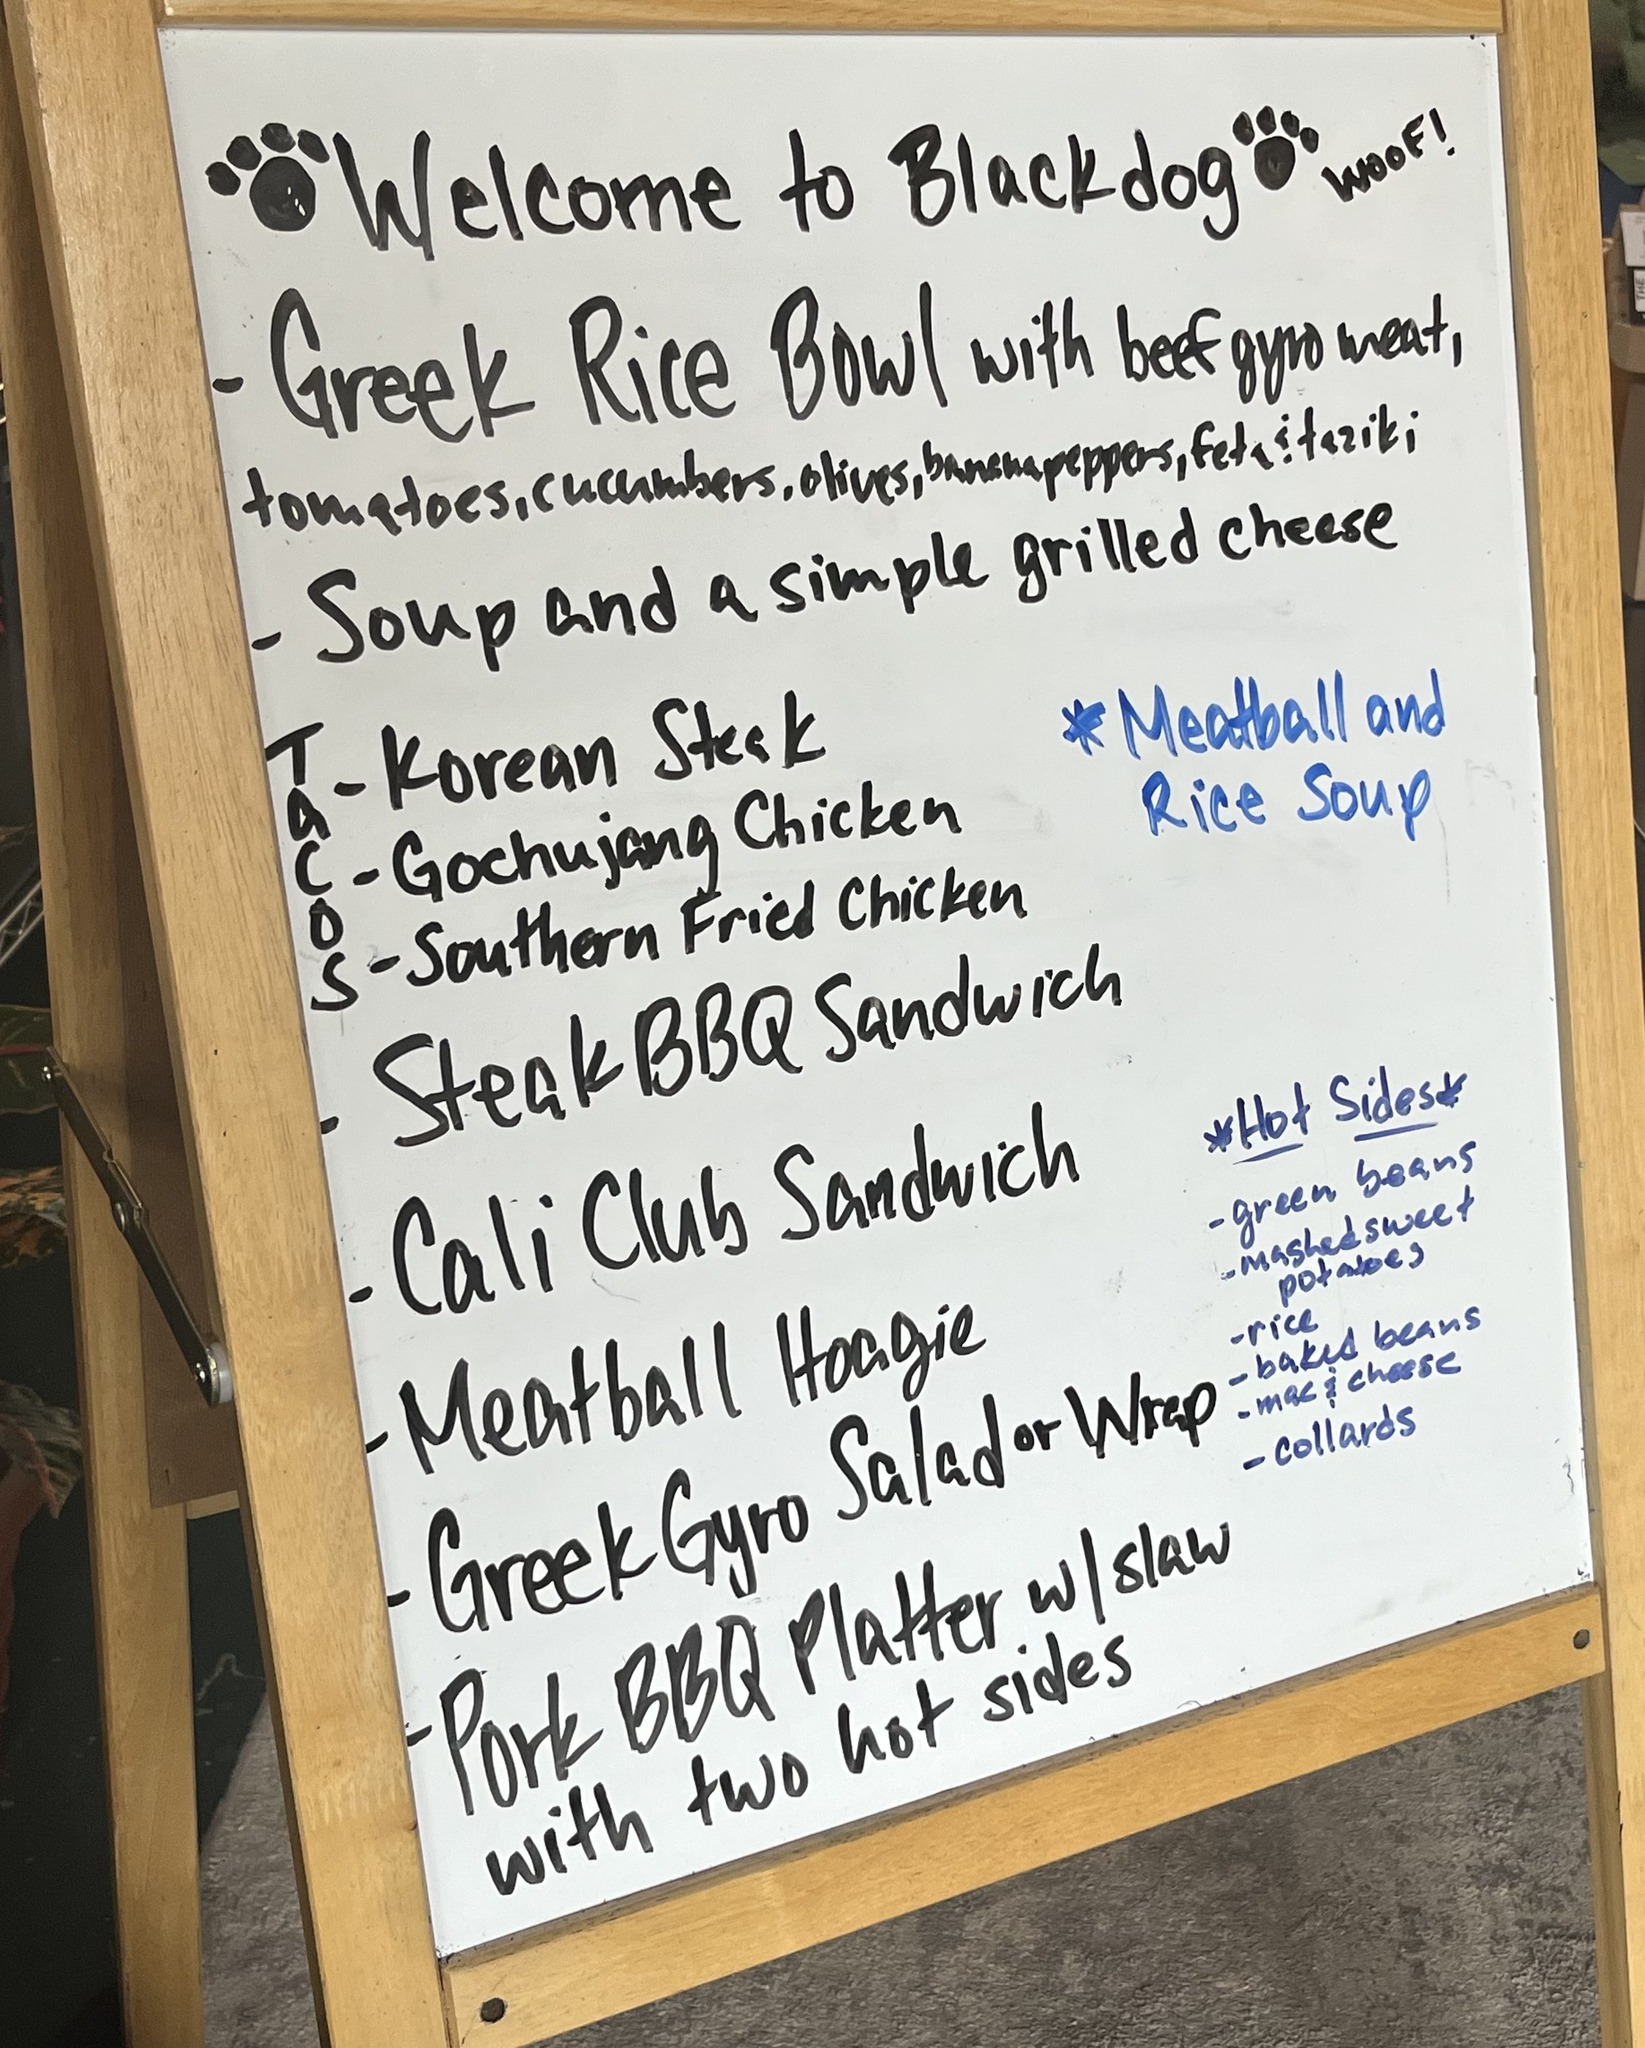 Welcome to Blackdog WOOF!
- Greek Rice Bowl with beef gyro meat,
tomatoes, cucumbers, olives, banana peppers, feta & taziki
- Soup and a simple grilled cheese
TACOS
- Korean Steak
- Gochujang Chicken
- Southern Fried Chicken
* Meatball and
Rice Soup
- Steak BBQ Sandwich
- Cali Club Sandwich
- Meatball Hoagie
- Greek Gyro Salad or Wrap
- Pork BBQ Platter w/ slaw
with two hot sides
*Hot Sides*
- green beans
- mashed sweet
potatoes
- rice
- baked beans
- mac & cheese
- collards